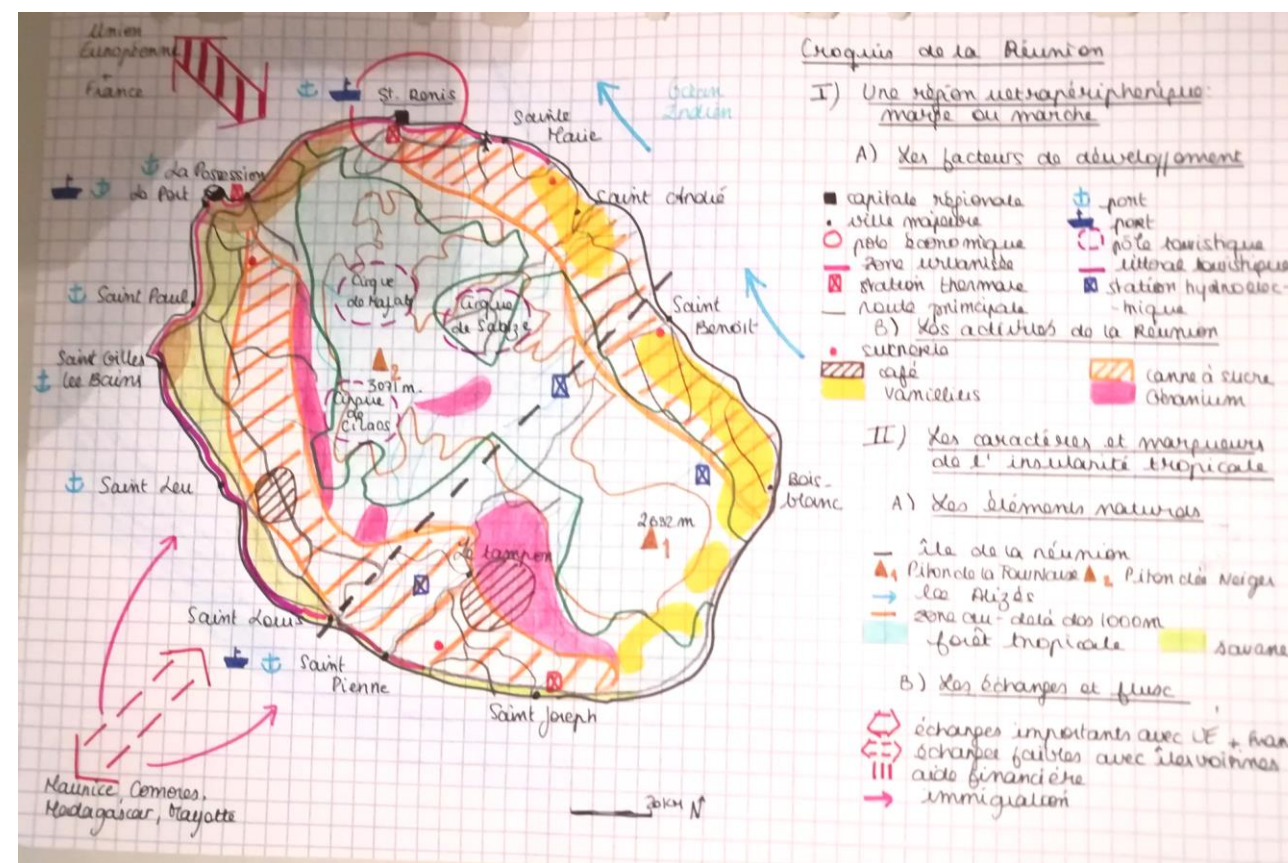 Union
Européenne
+
France
St. Denis
Océan
Indien
Sainte
Marie
La Possession
Le Port
Saint André
Saint Paul
Cirque
de Mafate
Cirque
de Salazie
Saint
Benoit
Saint Gilles
les Bains
2
3071 m.
Cirque
de
Cilaos
Saint Leu
Bois-
blanc
2632 m
1
Le tampon
Saint Louis
Saint
Pierre
Saint Joseph
Maurice Comores,
Madagascar, Mayotte
30KM N
Croquis de la Réunion
I) Une région :
marge ou marche
A) Les facteurs de développement
capitale régionale
port
ville majeure
port
pôle économique
pôle touristique
zone urbanisée
littoral touristique
station thermale
station hydroélec-
-mique
route principale
B) Les activités de la Réunion
sucrerie
café
canne à sucre
vanilliers
Géranium
II) Les caractères et marqueurs
de l'insularité tropicale
A) Les éléments naturels
île de la réunion
1 Piton de la Fournaise 2 Piton des Neiges
les Alizés
zone au-delà des 1000m
forêt tropicale
savane
B) Les échanges et flux
échanges importants avec UE + Fran
échanges faibles avec îles voisines
aide financière
immigration